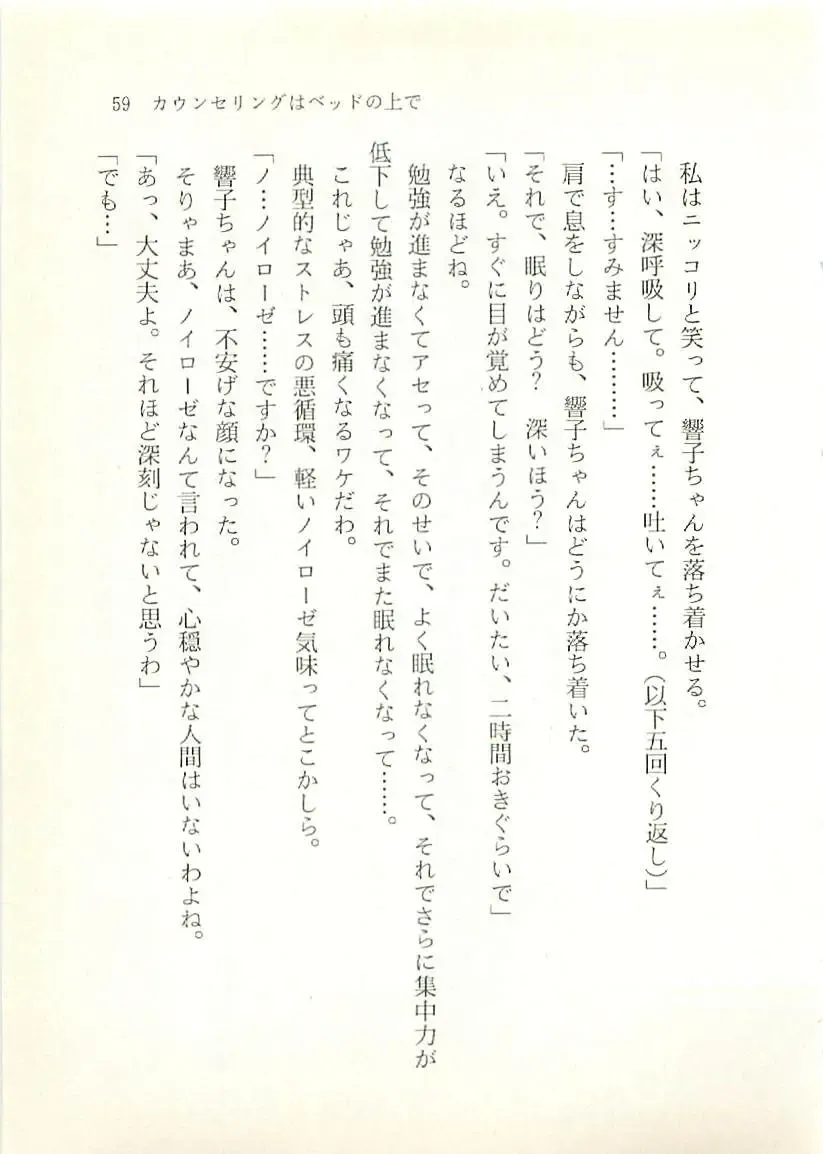 59　カウンセリングはベッドの上で
　私はニッコリと笑って、響子ちゃんを落ち着かせる。
「はい、深呼吸して。吸ってぇ……吐いてぇ……。（以下五回くり返し）」
「…す…すみません………」
　肩で息をしながらも、響子ちゃんはどうにか落ち着いた。
「それで、眠りはどう？　深いほう？」
「いえ。すぐに目が覚めてしまうんです。だいたい、二時間おきぐらいで」
　なるほどね。
　勉強が進まなくてアセって、そのせいで、よく眠れなくなって、それでさらに集中力が
低下して勉強が進まなくなって、それでまた眠れなくなって……。
　これじゃあ、頭も痛くなるワケだわ。
　典型的なストレスの悪循環、軽いノイローゼ気味ってとこかしら。
「ノ…ノイローゼ……ですか？」
　響子ちゃんは、不安げな顔になった。
　そりゃまあ、ノイローゼなんて言われて、心穏やかな人間はいないわよね。
「あっ、大丈夫よ。それほど深刻じゃないと思うわ」
「でも…」